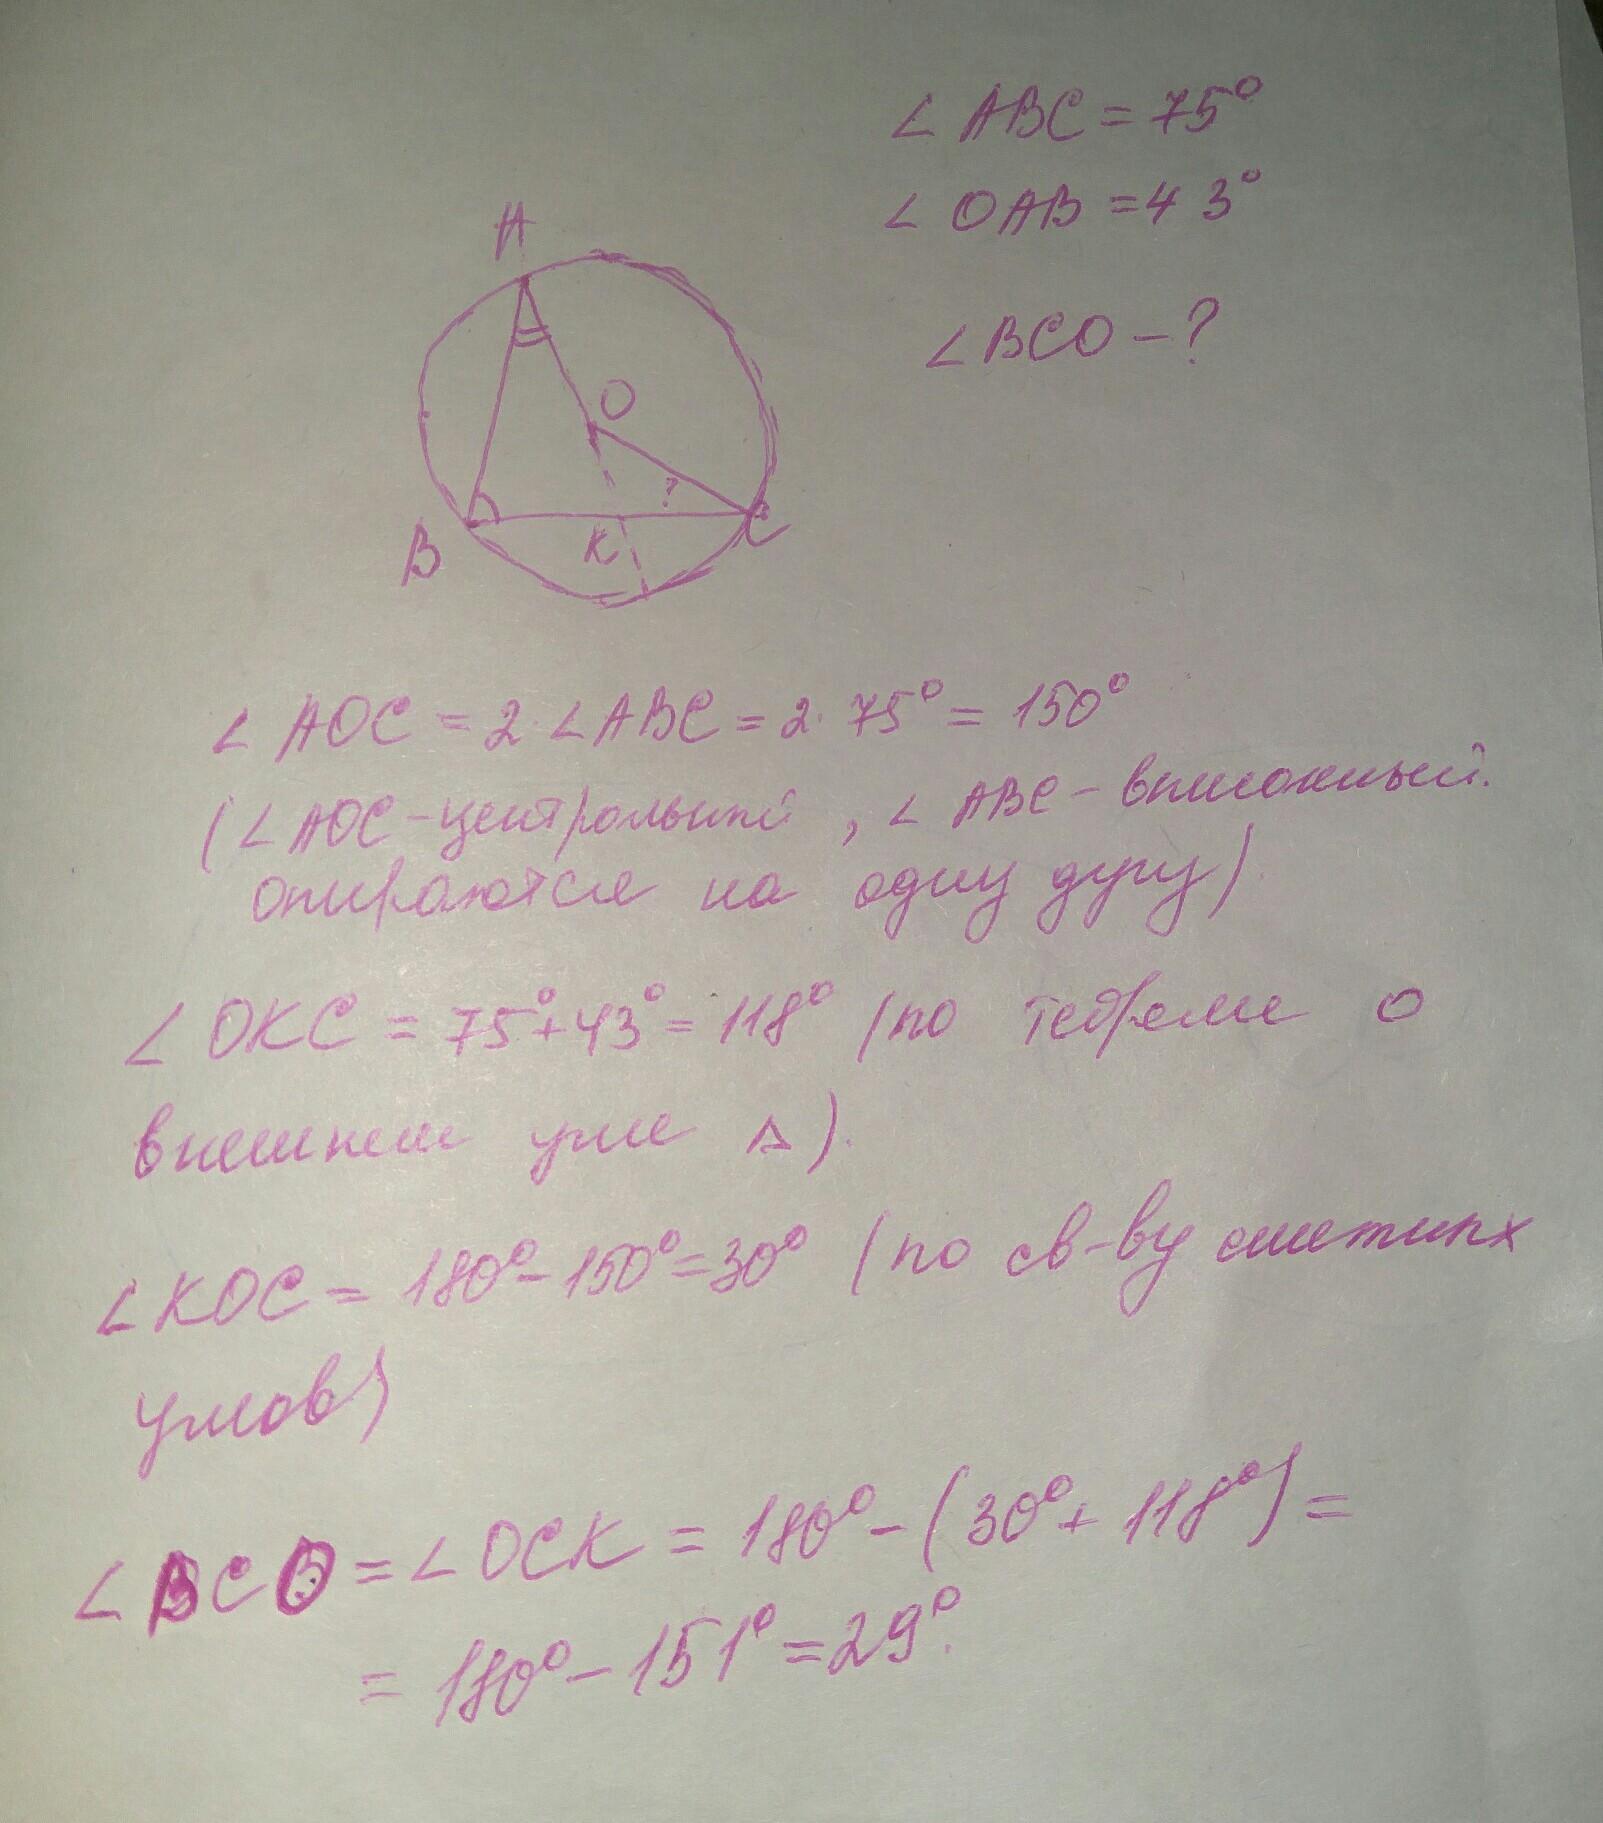 ∠ ABC = 75°
∠ OAB = 43°
∠ BCO - ?
A
O
?
B
K
C
∠ AOC = 2·∠ABC = 2·75° = 150°
(∠AOC - центральный, ∠ ABC - вписанный.
опираются на одну дугу).
∠ OKC = 75°+43° = 118° (по теореме о
внешнем угле △).
∠ KOC = 180°-150°=30° (по св-ву смежных
углов)
∠ BCO = ∠ OCK = 180° - (30°+118°) =
= 180° - 151° = 29°.